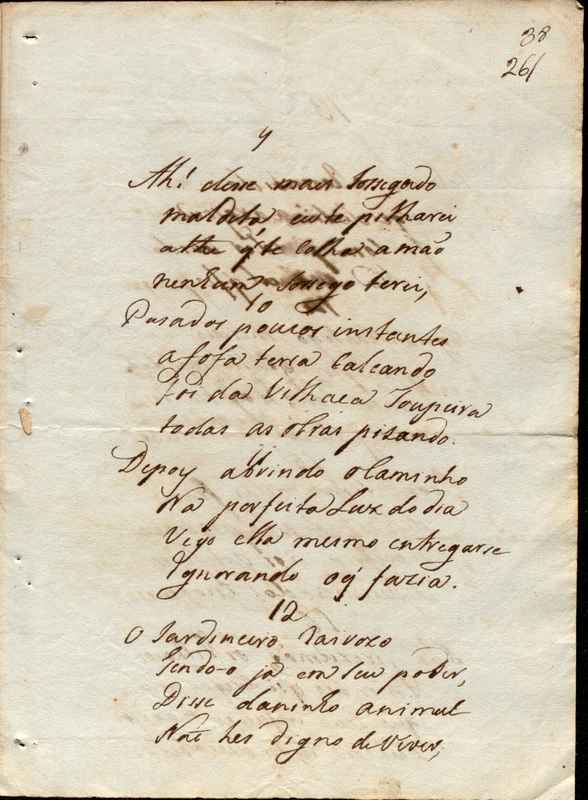 38
261
9
Ah! disse mais sossegado
maldita eu te pilharei
athe q' te colha a mão
nenhum sossego terei,
10
Pasados poucos instantes
a fofa terra calcando
foi da Vilhaca Toupeira
todas as obras pisando.
11
Depoy abrindo o Caminho
Na perfeita Lux do dia
Veyo ella mesmo entregarse
Ignorando o q' fazia.
12
O Jardineiro raivozo
Tendo-o ja em seu poder,
Disse daninho animal
Naõ hes digno de Viver,